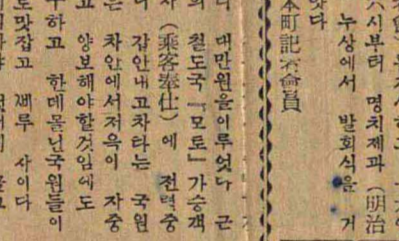 시부터 명치제과 (明治
누상에서 발회식을 거
本町記者會員
대만원을이루엇다 근
의 철도국 『모토』가승객
(乘客奉仕)에 전력중
갑안내고차타는 국원
은 차안에서저윽이 자중
고 양보해야할것임에도
하고 한데몰닌국원들이
로맛잡고 쎄루 사이다